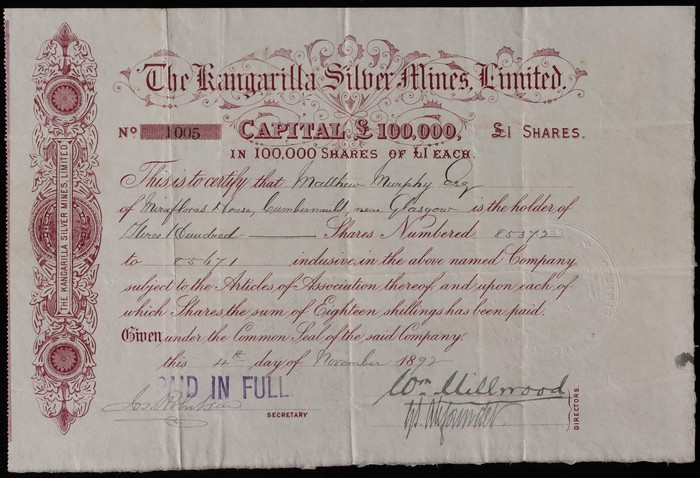 The Kangarilla Silver Mines, Limited.
No 1005 CAPITAL £100,000, £1 SHARES.
IN 100,000 SHARES OF £1 EACH.
This is to certify that Matthew Murphy Esq
of Miraflores House, Cumbernauld, near Glasgow is the holder of
Three Hundred Shares Numbered 85372
to 85671 inclusive, in the above named Company
subject to the Articles of Association thereof, and upon each of
which Shares the sum of Eighteen shillings has been paid.
Given under the Common Seal of the said Company.
this 4th day of November 1892
PAID IN FULL
Wm Millwood
SECRETARY
DIRECTORS.
THE KANGARILLA SILVER MINES, LIMITED